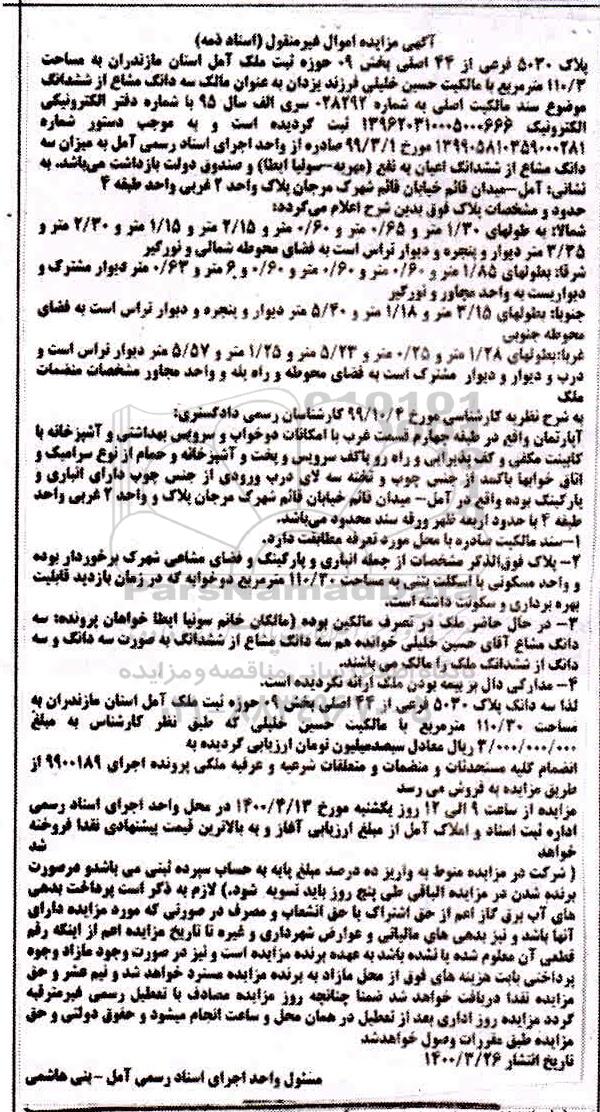 آگهی مزایده اموال غیرمنقول (اسناد ذمه)
پلاک ۵۰۳۰ فرعی از ۴۴ اصلی بخش ۰۹ حوزه ثبت ملک آمل استان مازندران به مساحت
۱۱۰/۳ مترمربع با مالکیت حسین خلیلی فرزند یزدان به عنوان مالک سه دانگ مشاع از ششدانگ
موضوع سند مالکیت اصلی به شماره ۰۲۸۲۹۲ سری الف سال ۹۵ با شماره دفتر الکترونیکی
الکترونیک ۱۳۹۶۲۰۳۱۰۰۰۵۰۰۰۶۶۶ ثبت گردیده است و به موجب دستور شماره
۱۳۹۹۰۵۸۱۰۳۵۹۰۰۰۲۸۱ مورخ ۹۹/۳/۱ صادره از واحد اجرای اسناد رسمی آمل به میزان سه
دانگ مشاع از ششدانگ اعیان به نفع (مهریه-سولیا ابطا) و صندوق دولت بازداشت می‌باشد. به
نشانی: آمل-میدان قائم خیابان قائم شهرک مرجان پلاک واحد ۲ غربی واحد طبقه ۴
حدود و مشخصات پلاک فوق بدین شرح اعلام می‌گردد:
شمالا: به طولهای ۱/۳۰ متر و ۰/۶۵ متر و ۰/۶۰ متر و ۲/۱۵ متر و ۱/۱۵ متر و ۲/۳۰ متر و
۳/۳۵ متر دیوار و پنجره و دیوار تراس است به فضای محوطه شمالی و نورگیر
شرقا: بطولهای ۱/۸۵ متر و ۰/۶۰ متر و ۰/۶۰ متر و ۰/۶۰ و ۶ متر و ۰/۶۳ متر دیوار مشترک و
دیواریست به واحد مجاور و نورگیر
جنوبا: بطولهای ۳/۱۵ متر و ۱/۱۸ متر و ۵/۴۰ متر دیوار و پنجره و دیوار تراس است به فضای
محوطه جنوبی
غربا:بطولهای ۱/۲۸ متر و ۰/۲۵ متر و ۵/۲۳ متر و ۱/۲۵ متر و ۵/۵۷ متر دیوار تراس است و
درب و دیوار و دیوار مشترک است به فضای محوطه و راه پله و واحد مجاور مشخصات منضمات
ملک
به شرح نظریه کارشناسی مورخ ۹۹/۱۰/۴ کارشناسان رسمی دادگستری:
آپارتمان واقع در طبقه چهارم قسمت غرب با امکانات دوخواب و سرویس بهداشتی و آشپزخانه با
کابینت مکفی و کف پذیرایی و راه رو پاگف سرویس و پخت و آشپزخانه و حمام از نوع سرامیک و
اتاق خوابها باکمد از جنس چوب و تخته سه لای درب ورودی از جنس چوب دارای انباری و
پارکینگ بوده واقع در آمل- میدان قائم خیابان قائم شهرک مرجان پلاک و واحد ۲ غربی واحد
طبقه ۴ با حدود اربعه ظهر ورقه سند محدود می‌باشد.
۱-سند مالکیت صادره با محل مورد تعرفه مطابقت دارد.
۲- پلاک فوق‌الذکر مشخصات از جمله انباری و پارکینگ و فضای مشاعی شهرک برخوردار بوده
و واحد مسکونی با اسکلت بتنی به مساحت ۱۱۰/۳۰ مترمربع دوخوابه که در زمان بازدید قابلیت
بهره برداری و سکونت داشته است.
۳- در حال حاضر ملک در تصرف مالکین بوده (مالکان خانم سونیا ابطا خواهان پرونده: سه
دانگ مشاع آقای حسین خلیلی خوانده هم سه دانگ مشاع از ششدانگ به صورت سه دانگ و سه
دانگ از ششدانگ ملک را مالک می باشند.
۴- مدارکی دال بر بیمه بودن ملک ارائه نگردیده است.
لذا سه دانگ پلاک ۵۰۳۰ فرعی از ۴۴ اصلی بخش ۰۹ حوزه ثبت ملک آمل استان مازندران به
مساحت ۱۱۰/۳۰ مترمربع با مالکیت حسین خلیلی که طبق نظر کارشناس به مبلغ
۳/۰۰۰/۰۰۰/۰۰۰ ریال معادل سیصدمیلیون تومان ارزیابی گردیده به
انضمام کلیه مستحدثات و منضمات و متعلقات شرعیه و عرفیه ملکی پرونده اجرای ۹۹۰۰۱۸۹ از
طریق مزایده به فروش می رسد
مزایده از ساعت ۹ الی ۱۲ روز یکشنبه مورخ ۱۴۰۰/۴/۱۳ در محل واحد اجرای اسناد رسمی
اداره ثبت اسناد و املاک آمل از مبلغ ارزیابی آغاز و به بالاترین قیمت پیشنهادی نقدا فروخته
خواهد شد
( شرکت در مزایده منوط به واریز ده درصد مبلغ پایه به حساب سپرده ثبتی می باشدو درصورت
برنده شدن در مزایده الباقی طی پنج روز باید تسویه شود.) لازم به ذکر است پرداخت بدهی
های آب برق گاز اعم از حق اشتراک یا حق انشعاب و مصرف در صورتی که مورد مزایده دارای
آنها باشد و نیز بدهی های مالیاتی و عوارض شهرداری و غیره تا تاریخ مزایده اعم از اینکه رقم
قطعی آن معلوم شده یا نشده باشد به عهده برنده مزایده است و نیز در صورت وجود مازاد وجوه
پرداختی بابت هزینه های فوق از محل مازاد به برنده مزایده مسترد خواهد شد و نیم عشر و حق
مزایده نقدا دریافت خواهد شد ضمنا چنانچه روز مزایده مصادف با تعطیل رسمی غیرمترقبه
گردد مزایده روز اداری بعد از تعطیل در همان محل و ساعت انجام میشود و حقوق دولتی و حق
مزایده طبق مقررات وصول خواهدشد
تاریخ انتشار ۱۴۰۰/۳/۲۶
مسئول واحد اجرای اسناد رسمی آمل -بنی هاشمی